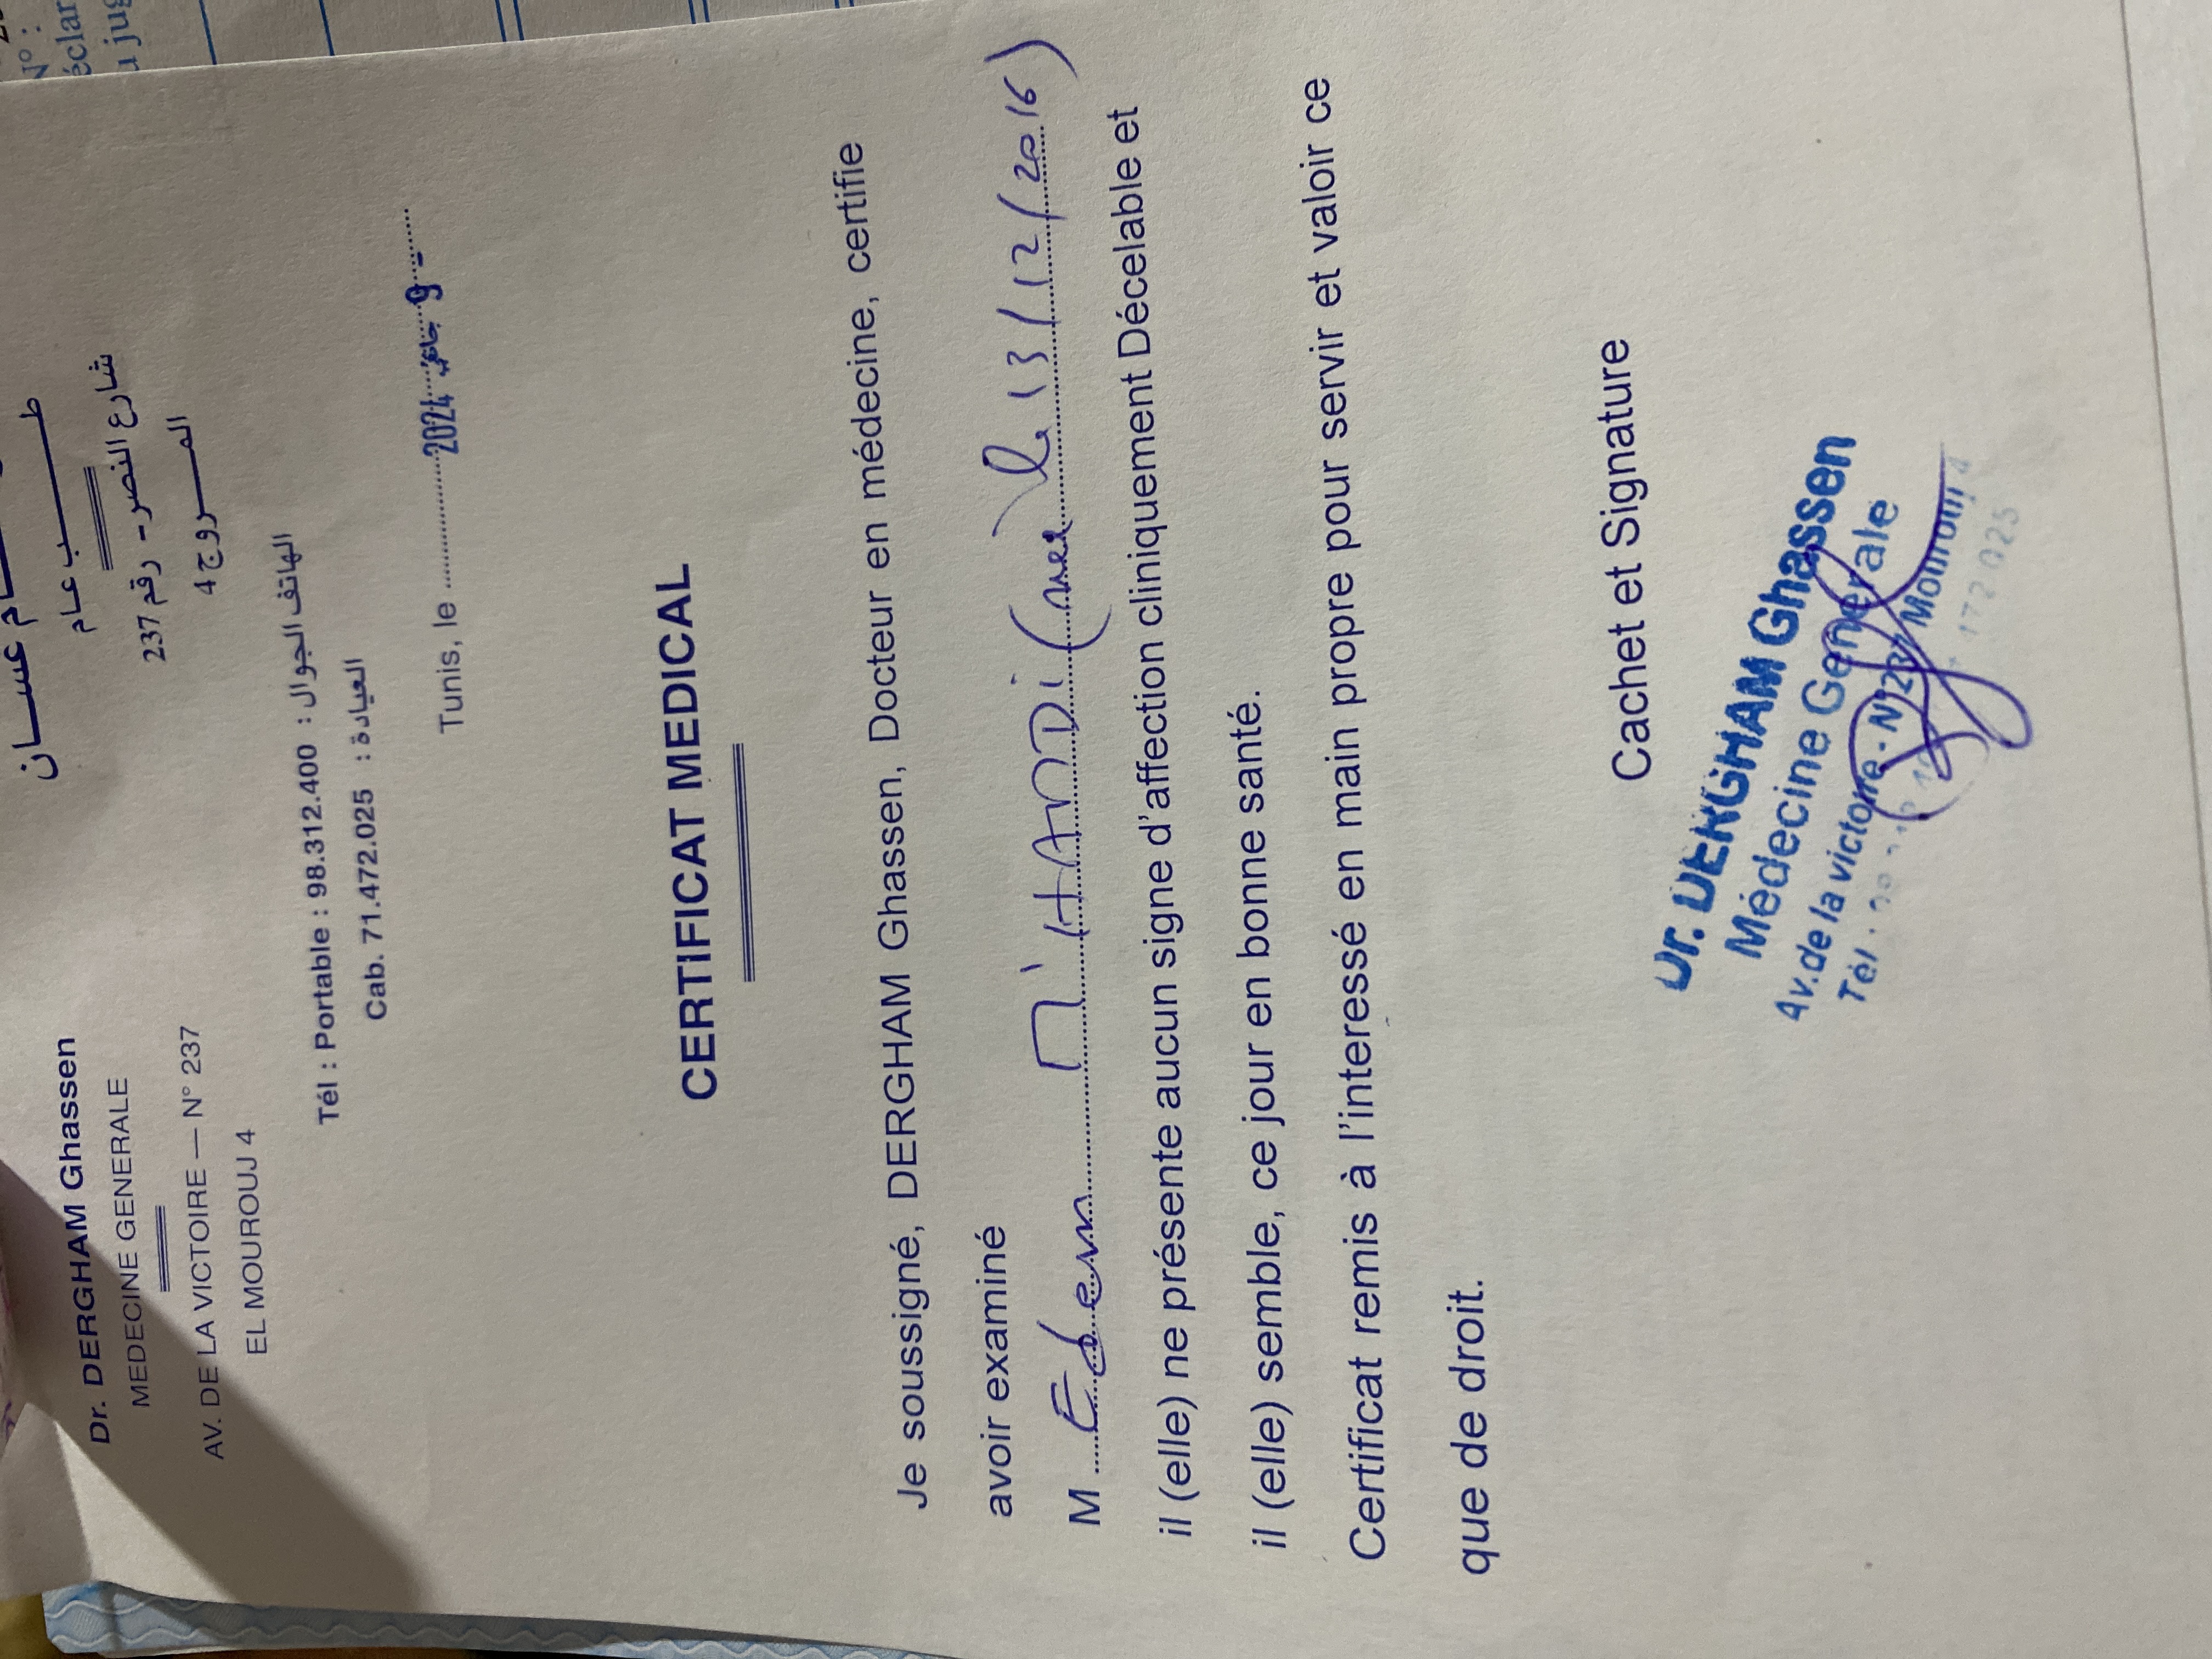 N° :
Dr. DERGHAM Ghassen
MEDECINE GENERALE
AV. DE LA VICTOIRE — N° 237
EL MOUROUJ 4
غسان
طب عام
شارع النصر - رقم 237
المروج 4
Tél : Portable : 98.312.400 : الهاتف الجوال
Cab. 71.472.025 : العيادة
Tunis, le 2024 جانفي 9 -
CERTIFICAT MEDICAL
Je soussigné, DERGHAM Ghassen, Docteur en médecine, certifie
avoir examiné
M M'HAMDI ( le 13/12/2016)
il (elle) ne présente aucun signe d'affection cliniquement Décelable et
il (elle) semble, ce jour en bonne santé.
Certificat remis à l'interessé en main propre pour servir et valoir ce
que de droit.
Cachet et Signature
Dr. DERGHAM Ghassen
Médecine Generale
Av. de la victoire - N°237 Mourouj 4
Tél